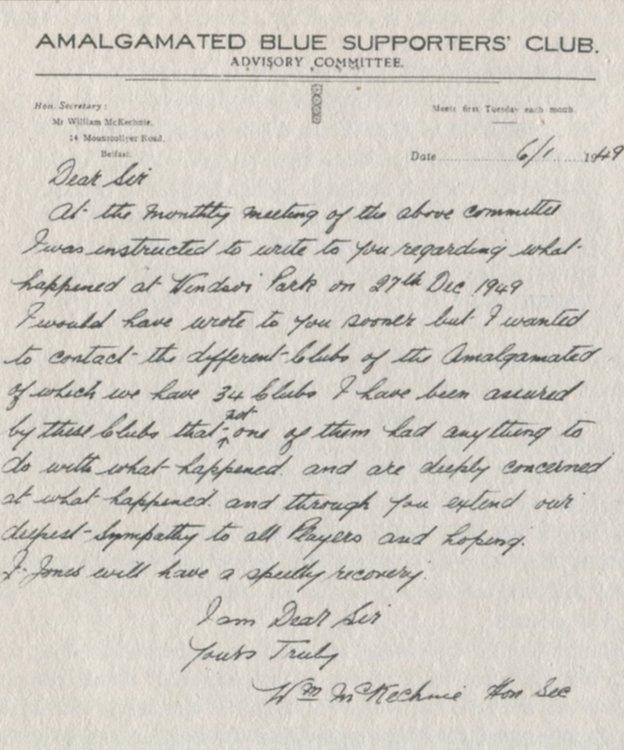 AMALGAMATED BLUE SUPPORTERS' CLUB.
ADVISORY COMMITTEE.
Hon. Secretary:
Mr William McKechnie,
14 Mountcollyer Road,
Belfast.
Meets first Tuesday each month.
Date 6/1 1949
Dear Sir
At the Monthly Meeting of the above committee
I was instructed to write to you regarding what
happened at Windsor Park on 27th Dec 1949
I would have wrote to you sooner but I wanted
to contact the different Clubs of the Amalgamated
of which we have 34 Clubs I have been assured
by these Clubs that not one of them had anything to
do with what happened. and are deeply concerned
at what happened. and through you extend our
deepest Sympathy to all Players and hoping.
J. Jones will have a speedy recovery.
I am Dear Sir
Yours Truly
Wm McKechnie Hon Sec